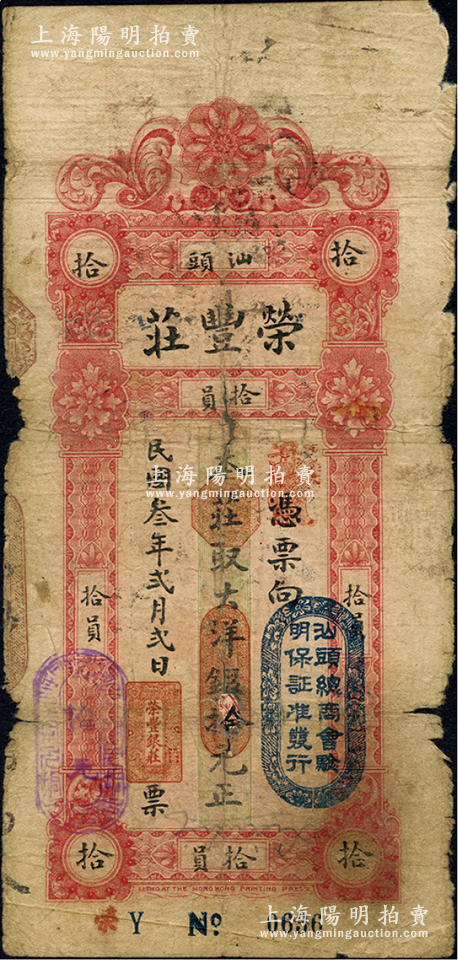 上海陽明拍賣
www.yangmingauction.com
拾
拾
汕頭
榮豐莊
拾員
憑票向
本莊取大洋銀拾元正
民國叁年弍月弍日
票
上海陽明拍賣
www.yangmingauction.com
拾員
拾員
汕頭總商會驗
明保証准發行
榮豐銀莊
拾
拾員
拾
LITHO AT THE HONGKONG PRINTING PRESS
Y No 0636
上海陽明拍賣
www.yangmingauction.com